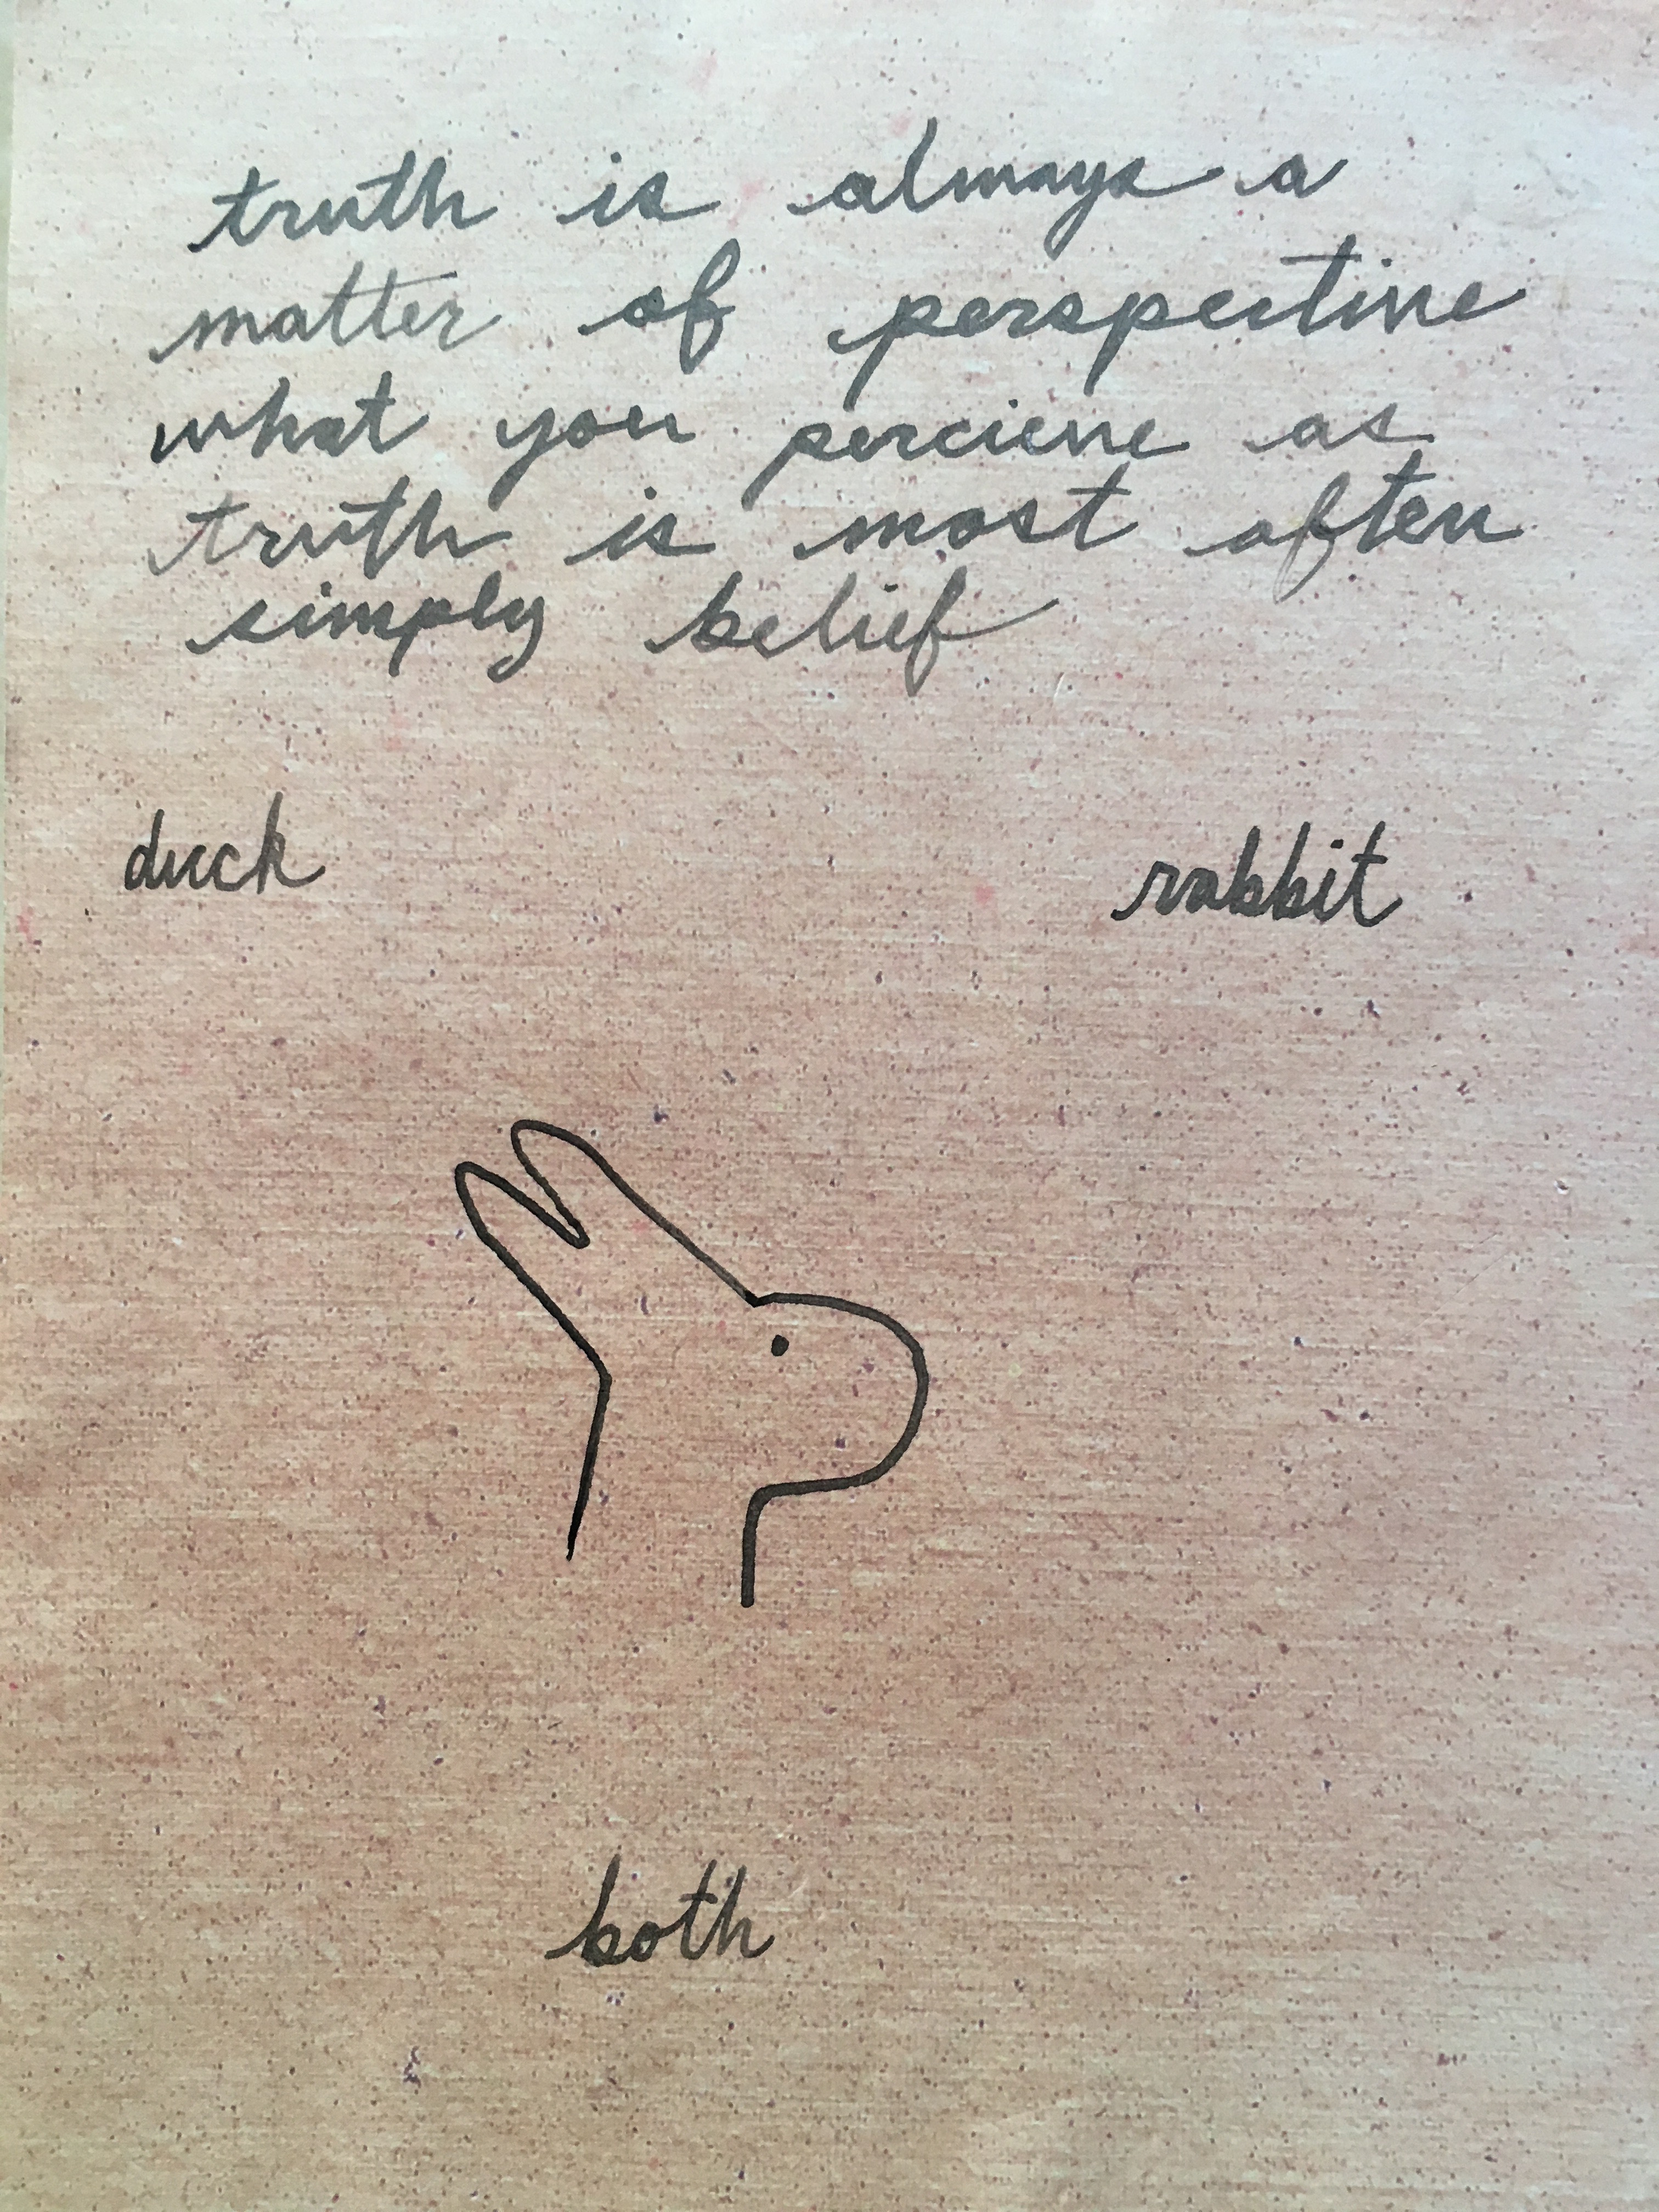 truth is always a
matter of perspective
what you percieve as
truth is most often
simply belief
duck
rabbit
both